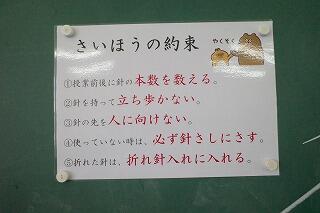 さいほうの約束
やくそく
①授業前後に針の本数を数える。
②針を持って立ち歩かない。
③針の先を人に向けない。
④使っていない時は、必ず針さしにさす。
⑤折れた針は、折れ針入れに入れる。